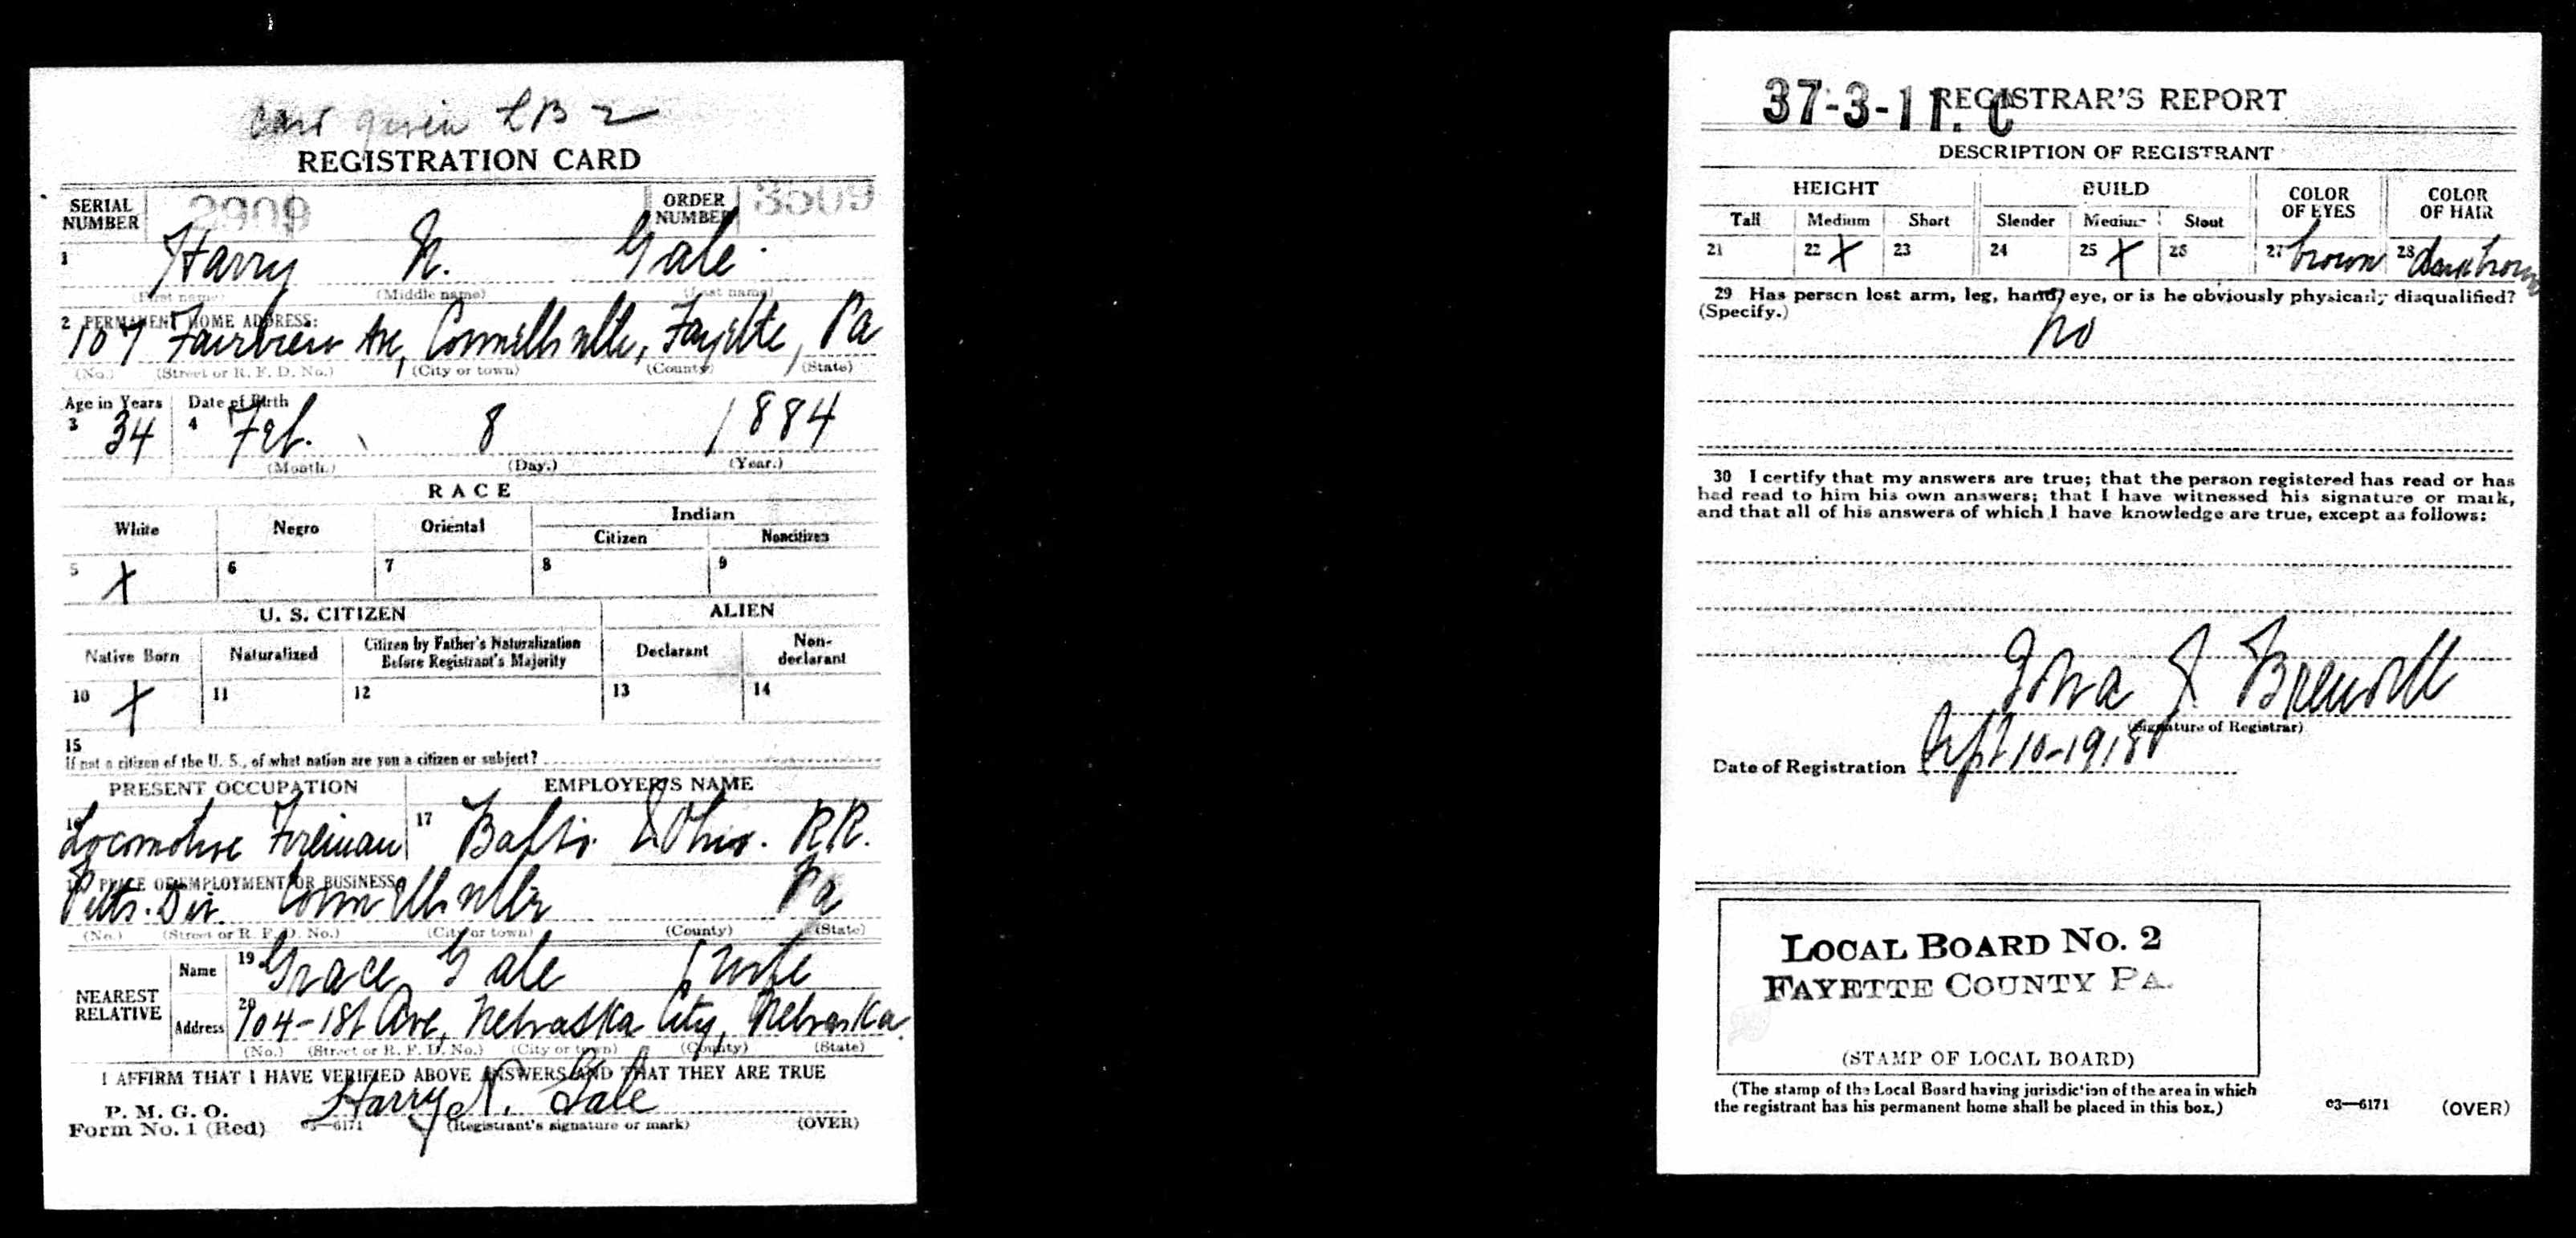 Card given LB 2
REGISTRATION CARD
SERIAL NUMBER 2909 ORDER NUMBER 3509
1 Harry N. Gale
(First name) (Middle name) (Last name)
2 PERMANENT HOME ADDRESS:
107 Fairview Ave, Connellsville, Fayette, Pa
(No.) (Street or R. F. D. No.) (City or town) (County) (State)
Age in Years Date of Birth
3 34 4 Feb. 8 1884
(Month.) (Day.) (Year.)
RACE
White Negro Oriental Indian
Citizen Noncitizen
5 X 6 7 8 9
U. S. CITIZEN ALIEN
Native Born Naturalized Citizen by Father's Naturalization Before Registrant's Majority Declarant Non-declarant
10 X 11 12 13 14
15
If not a citizen of the U. S., of what nation are you a citizen or subject?
PRESENT OCCUPATION EMPLOYER'S NAME
16 Locomotive Fireman 17 Balto. & Ohio. R.R.
18 PLACE OF EMPLOYMENT OR BUSINESS:
Pitts. Div. Connellsville Pa
(No.) (Street or R. F. D. No.) (City or town) (County) (State)
NEAREST RELATIVE
Name 19 Grace Gale (wife
Address 20 704-1st Ave, Nebraska City, Nebraska.
(No.) (Street or R. F. D. No.) (City or town) (County) (State)
I AFFIRM THAT I HAVE VERIFIED ABOVE ANSWERS AND THAT THEY ARE TRUE
P. M. G. O.
Form No. 1 (Red) 03—6171 Harry N. Gale
(Registrant's signature or mark) (OVER)
37-3-11. C REGISTRAR'S REPORT
DESCRIPTION OF REGISTRANT
HEIGHT BUILD COLOR OF EYES COLOR OF HAIR
Tall Medium Short Slender Medium Stout
21 22 X 23 24 25 X 26 27 brown 28 dark brown
29 Has person lost arm, leg, hand, eye, or is he obviously physically disqualified?
(Specify.) no
30 I certify that my answers are true; that the person registered has read or has
had read to him his own answers; that I have witnessed his signature or mark,
and that all of his answers of which I have knowledge are true, except as follows:
J
(Signature of Registrar)
Date of Registration Sept 10-1918
LOCAL BOARD NO. 2
FAYETTE COUNTY PA.
(STAMP OF LOCAL BOARD)
(The stamp of the Local Board having jurisdiction of the area in which
the registrant has his permanent home shall be placed in this box.)
03—6171 (OVER)